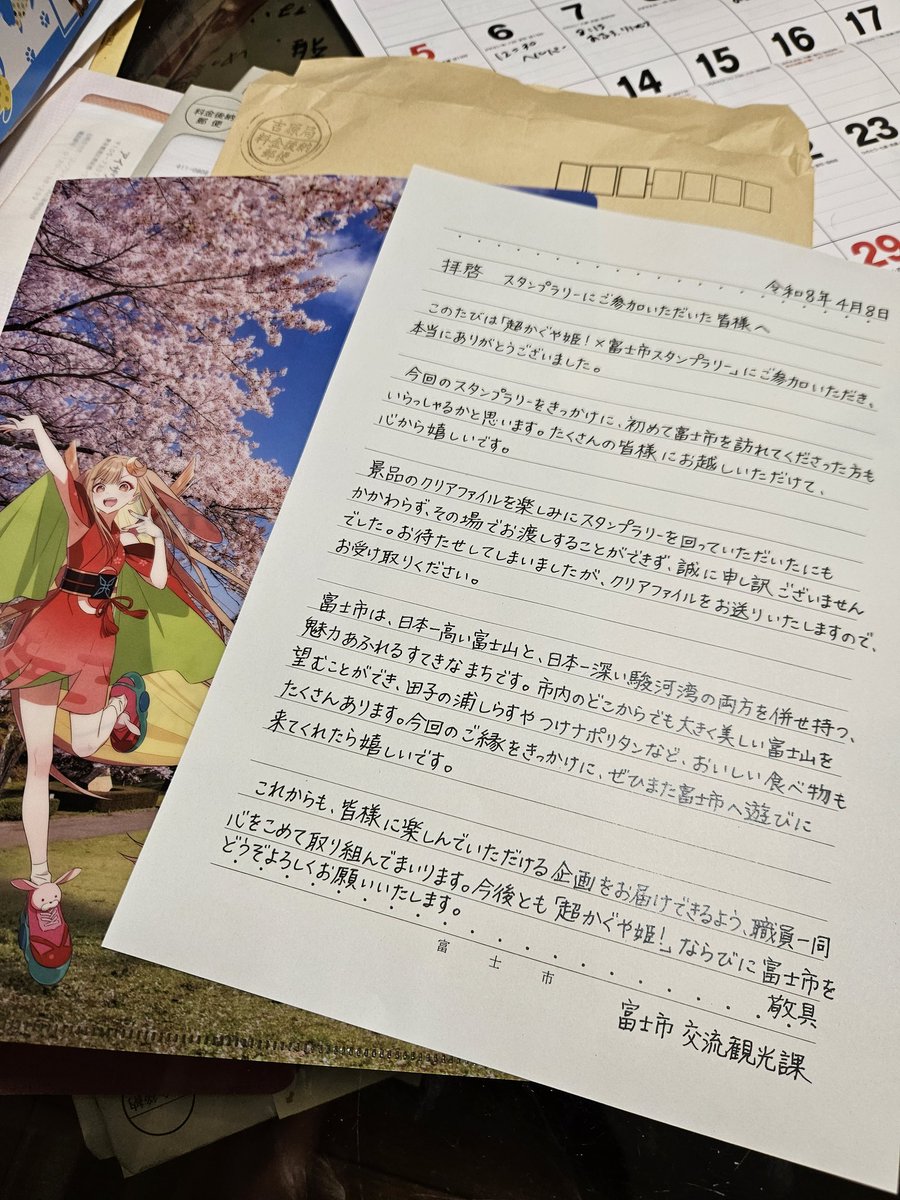 5
6
12:30
7
14
15
16
17
23
29
料金後納
郵便
吉原局
料金後納
郵便
令和8年4月8日
拝啓 スタンプラリーにご参加いただいた皆様へ
このたびは「超かぐや姫!×富士市スタンプラリー」にご参加いただき、
本当にありがとうございました。
今回のスタンプラリーをきっかけに、初めて富士市を訪れてくださった方も
いらっしゃるかと思います。たくさんの皆様にお越しいただけて、
心から嬉しいです。
景品のクリアファイルを楽しみにスタンプラリーを回っていただいたにも
かかわらず、その場でお渡しすることができず、誠に申し訳ございません
でした。お待たせしてしまいましたが、クリアファイルをお送りいたしますので、
お受け取りください。
富士市は、日本一高い富士山と、日本一深い駿河湾の両方を併せ持つ、
魅力あふれるすてきなまちです。市内のどこからでも大きく美しい富士山を
望むことができ、田子の浦しらすやつけナポリタンなど、おいしい食べ物も
たくさんあります。今回のご縁をきっかけに、ぜひまた富士市へ遊びに
来てくれたら嬉しいです。
これからも、皆様に楽しんでいただける企画をお届けできるよう、職員一同
心をこめて取り組んでまいります。今後とも「超かぐや姫!」ならびに富士市を
どうぞよろしくお願いいたします。
敬具
富士市
富士市 交流観光課